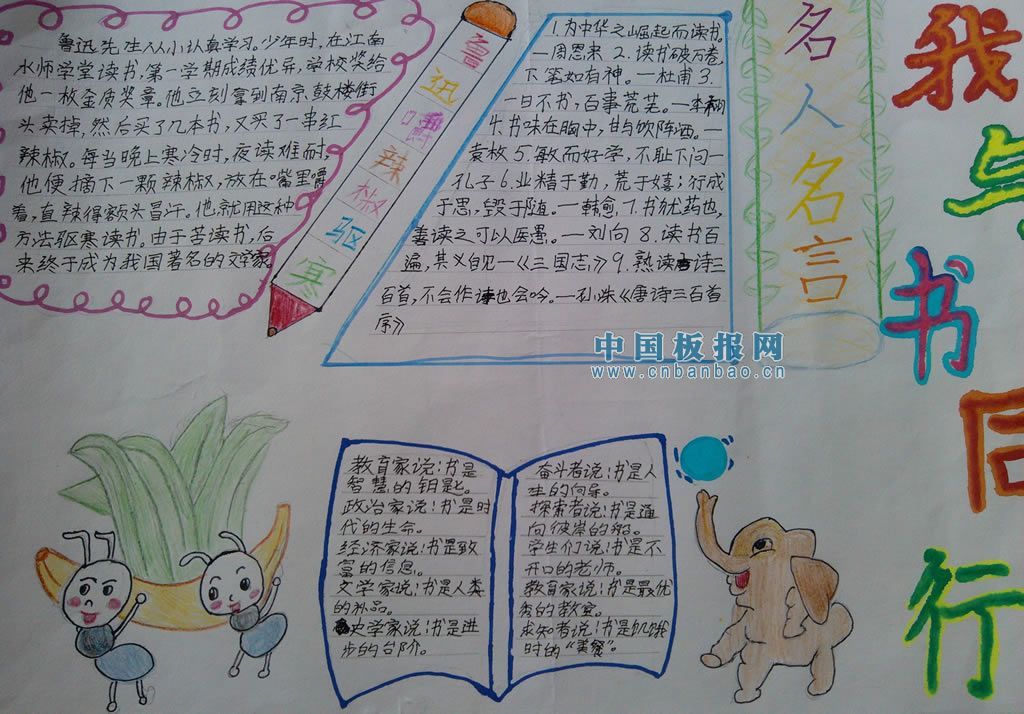 鲁迅先生从小认真学习。少年时,在江南
水师学堂读书,第一学期成绩优异,学校奖给
他一枚金质奖章。他立刻拿到南京鼓楼街
头卖掉,然后买了几本书,又买了一串红
辣椒。每当晚上寒冷时,夜读难耐,
他便摘下一颗辣椒,放在嘴里嚼
着,直辣得额头冒汗。他就用这种
方法驱寒读书。由于苦读书,后
来终于成为我国著名的文学家
鲁迅嚼辣椒驱寒
1.为中华之崛起而读书。
—周恩来 2.读书破万卷,
下笔如有神。—杜甫 3.
一日不书,百事荒芜。—李栩
4.书味在胸中,甘与饮陈酒。—
袁枚 5.敏而好学,不耻下问—
孔子 6.业精于勤,荒于嬉;行成
于思,毁于随。—韩愈,7.书犹药也,
善读之可以医愚。—刘向 8.读书百
遍,其义自见—《三国志》9.熟读唐诗三
百首,不会作诗也会吟。—孙洙《唐诗三百首
序》
名人名言
我与书同行
中国板报网
www.cnbanbao.cn
教育家说:书是
智慧的钥匙。
政治家说:书是时
代的生命。
经济家说:书是致
富的信息。
文学家说:书是人类
的补品。
史学家说:书是进
步的台阶。
奋斗者说:书是人
生的向导。
探索者说:书是通
向彼岸的船。
学生们说:书是不
开口的老师。
教育家说:书是最优
秀的教室。
求知者说:书是饥饿
时的“美餐”。